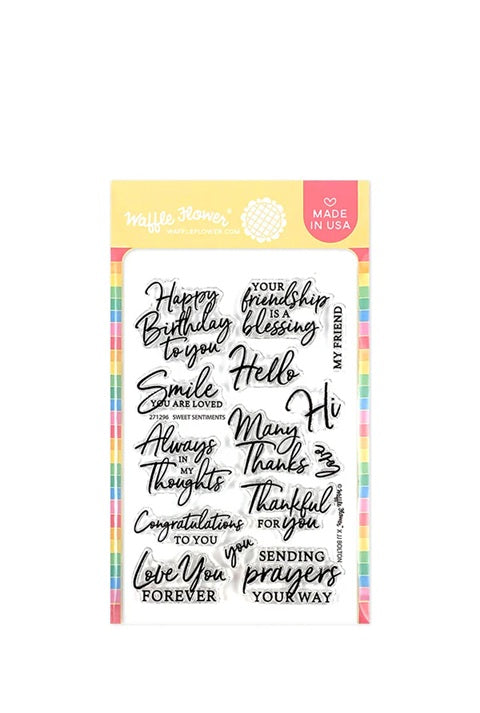 Waffle Flower®
WAFFLEFLOWER.COM
MADE
IN USA
Happy
Birthday
to you
YOUR
friendship
IS A
blessing
MY FRIEND
Hello
Smile
YOU ARE LOVED
271296 SWEET SENTIMENTS
Hi
Always
IN
MY
Thoughts
Many
Thanks
love
Thankful
FOR you
Congratulations
TO YOU
you
© Waffle Flower X JJ BOLTON
Love You
FOREVER
SENDING
prayers
YOUR WAY